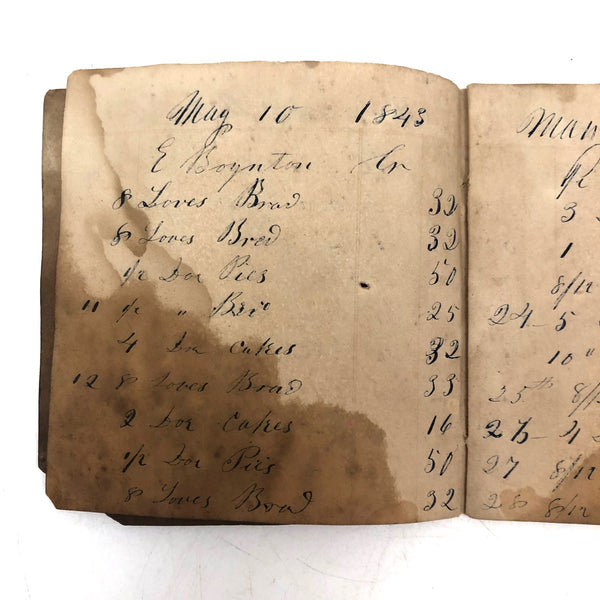 May 10 1843
E Boynton Cr
8 Loves Brad 32
8 Loves Bred 32
1/2 Doz Pies 50
11 1/2 " 25
4 Dz Cakes 32
12 8 Loves Brad 33
2 Doz Cakes 16
1/2 Doz Pies 50
8 Loves Brad 32
3
1
8/12
24 - 5
10 "
25th 8/12
27 8/12
28 8/12